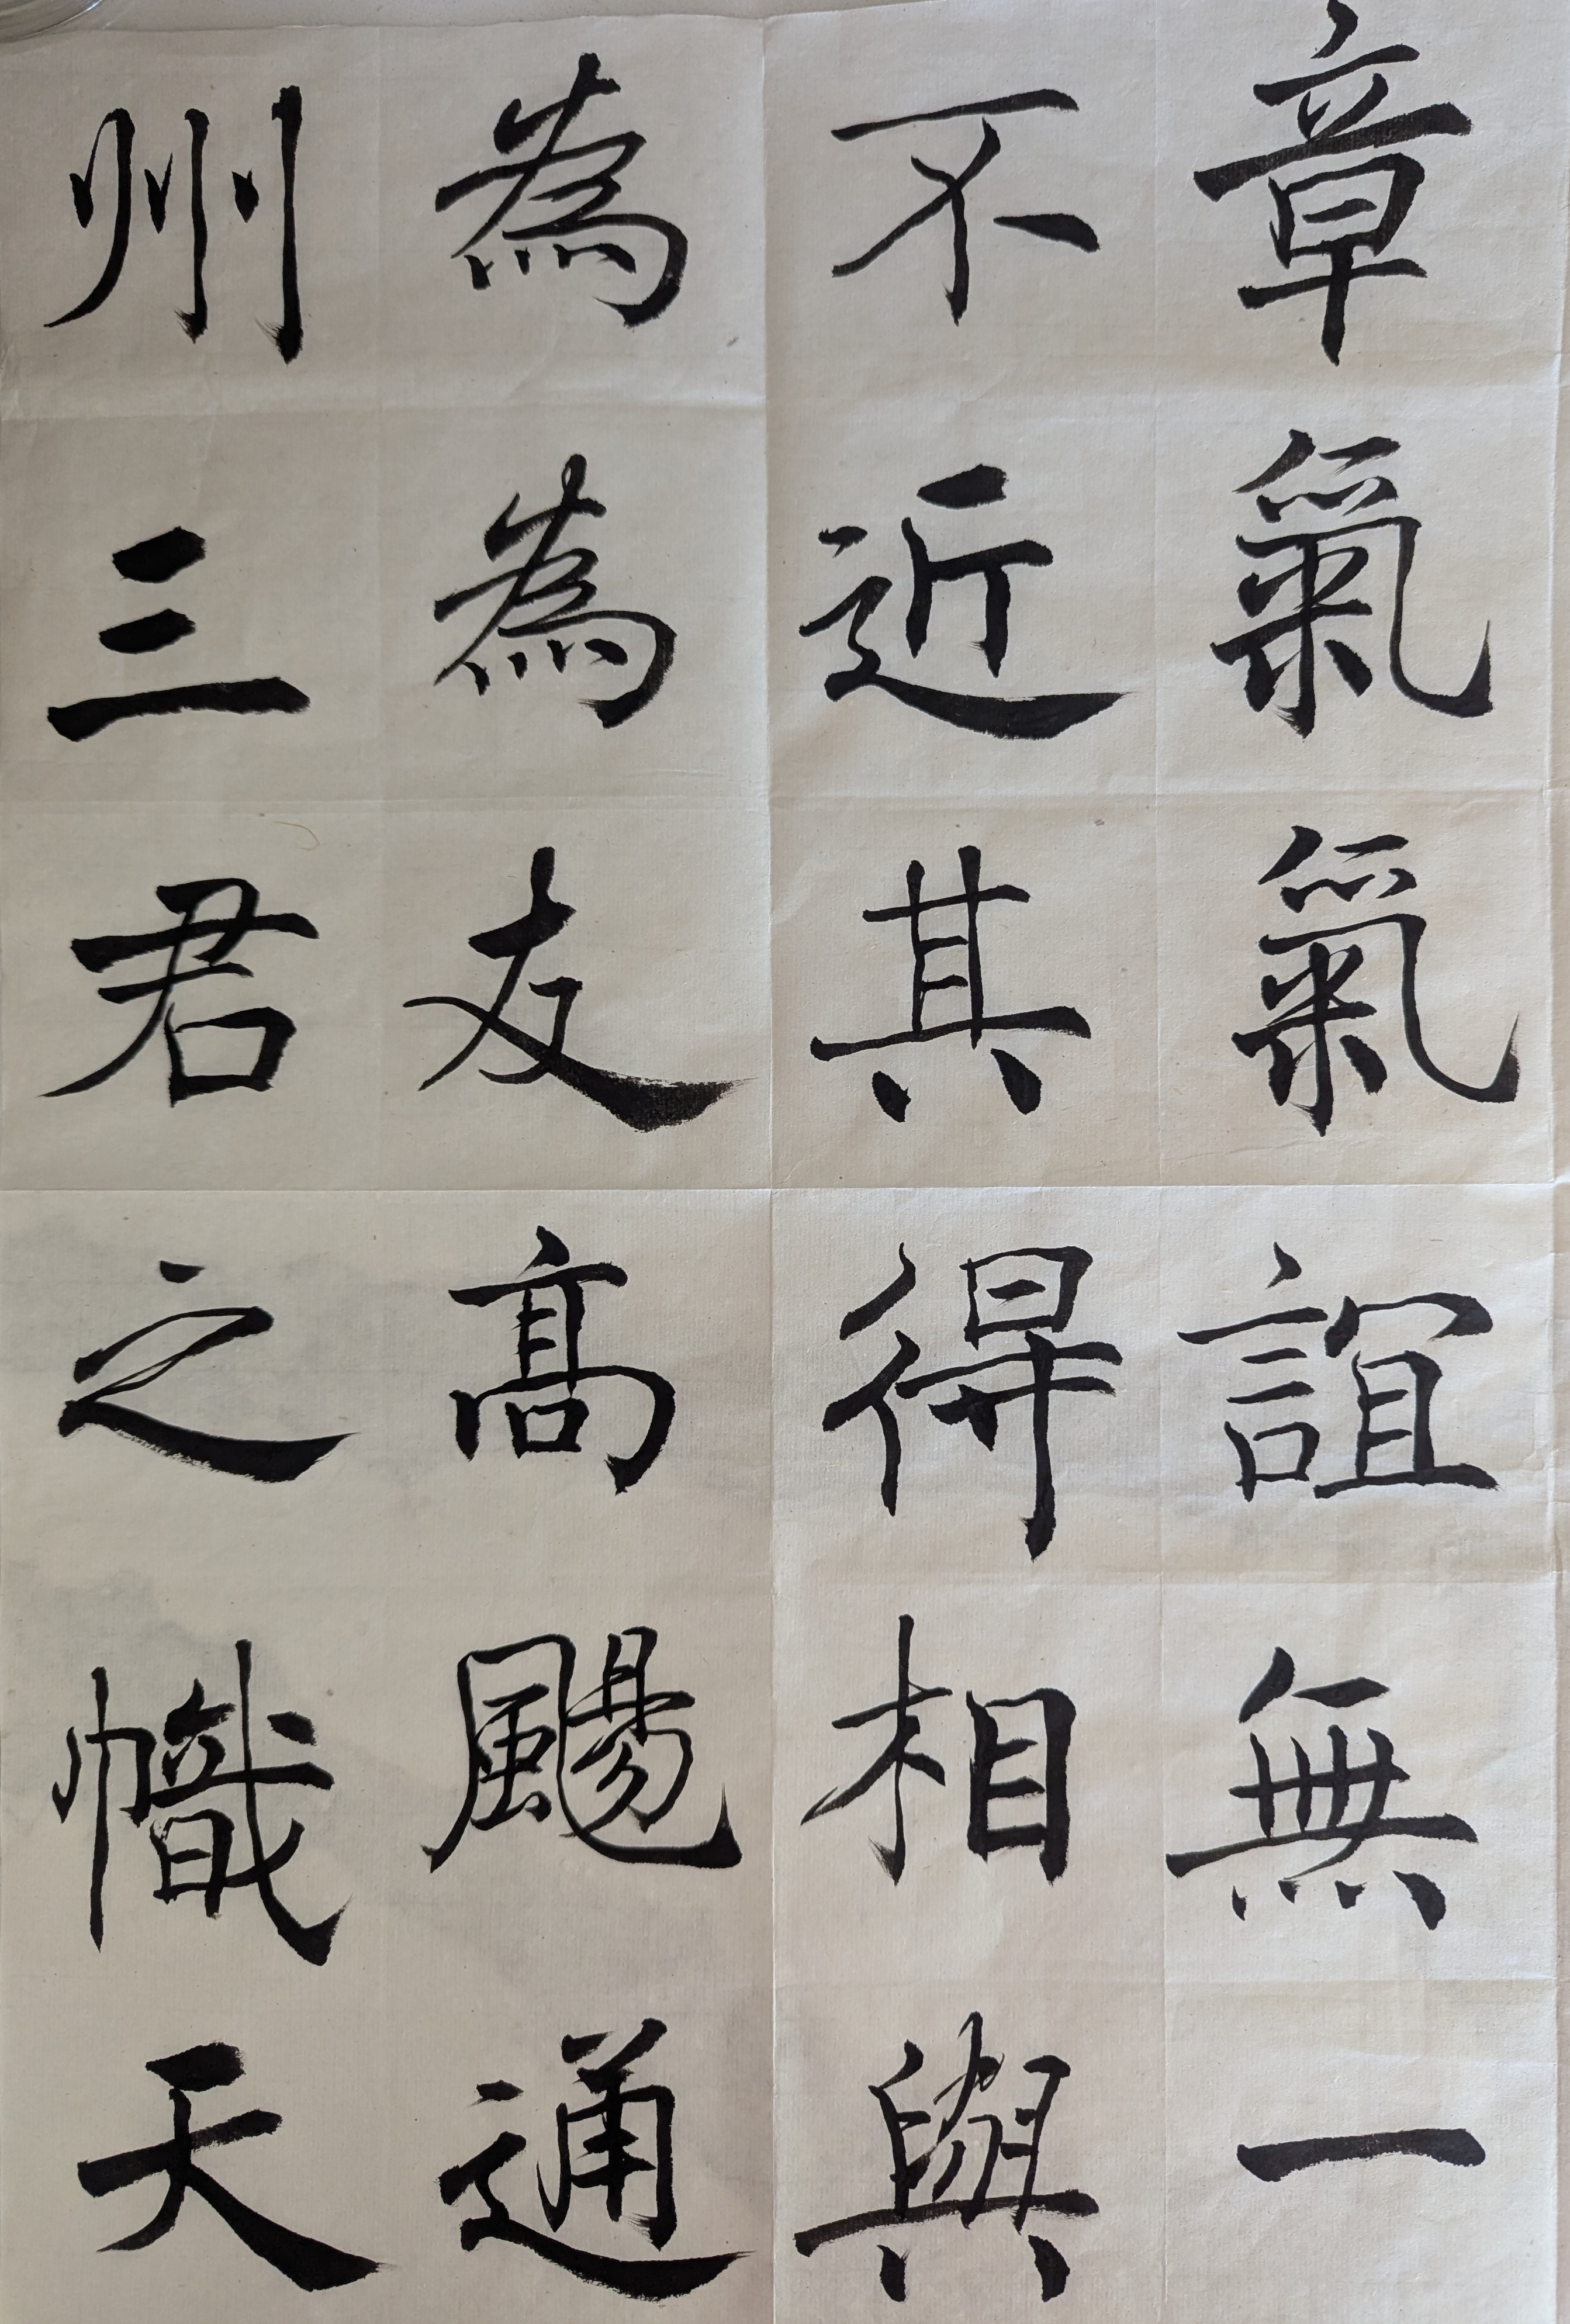 章氣氣誼無一
不近其得相與
為為友高颺通
州三君之幟天